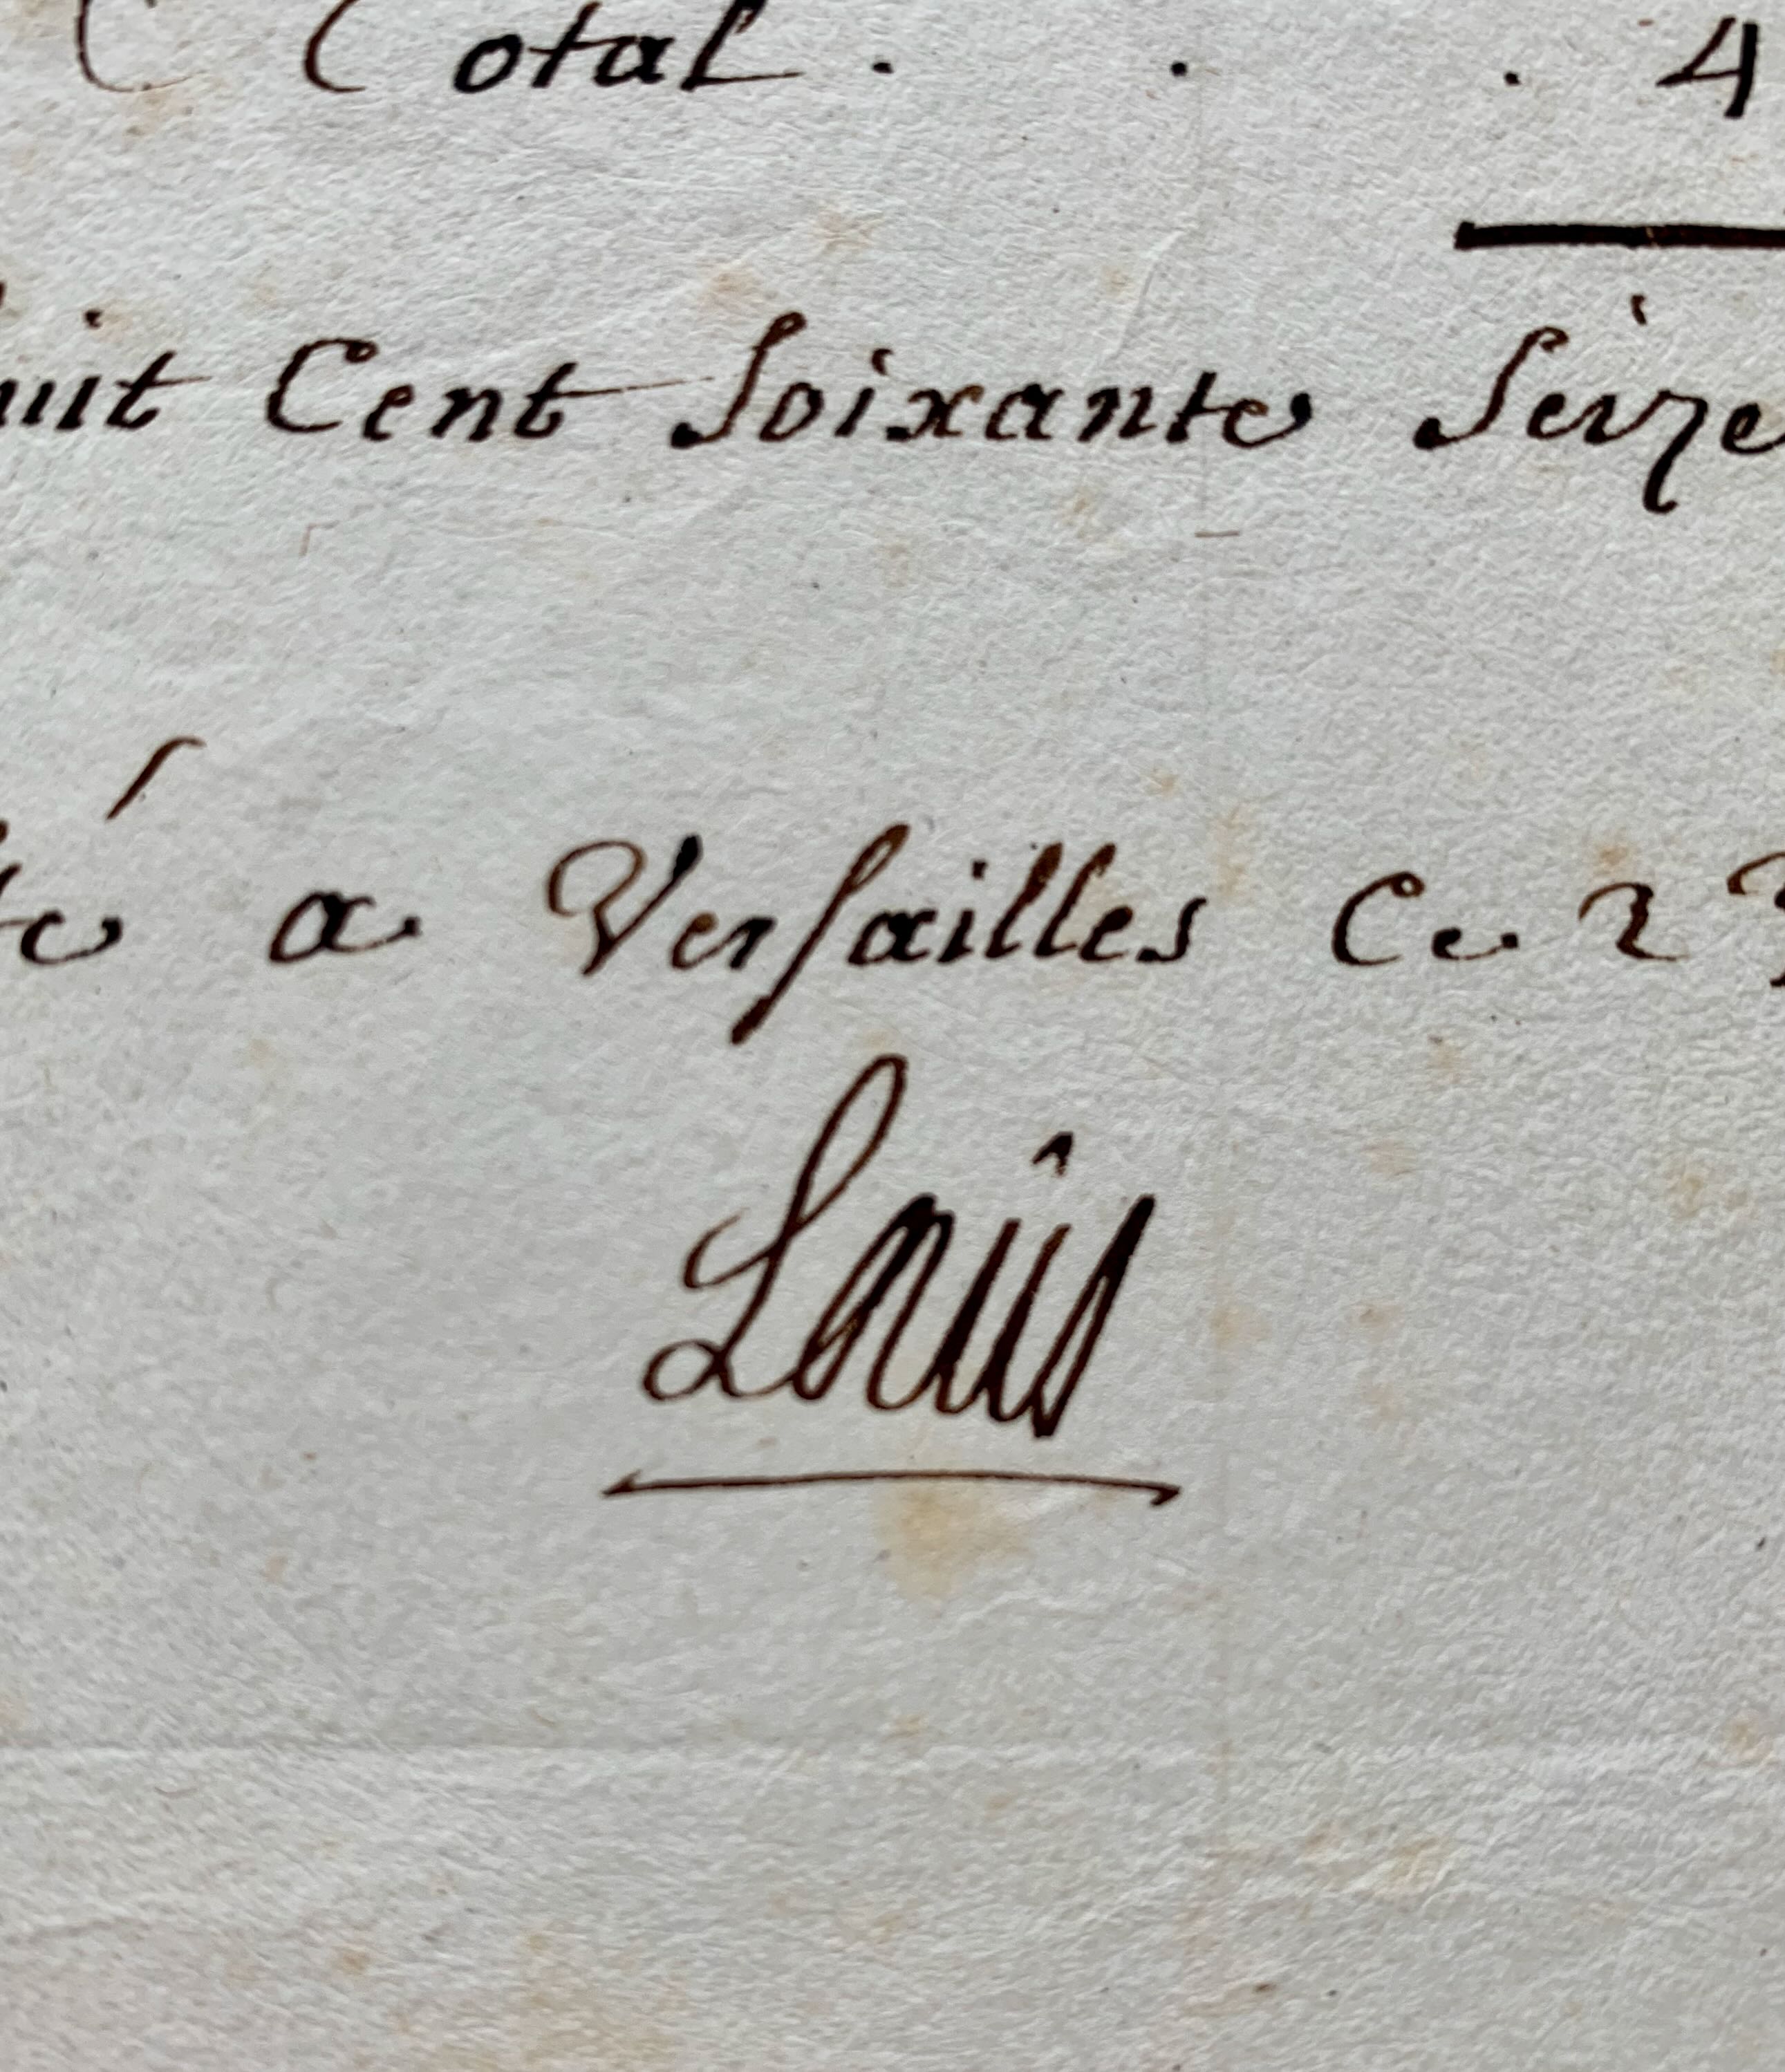 Total . . . 4
huit Cent Soixante Seize
té a Versailles Ce 2
Louis